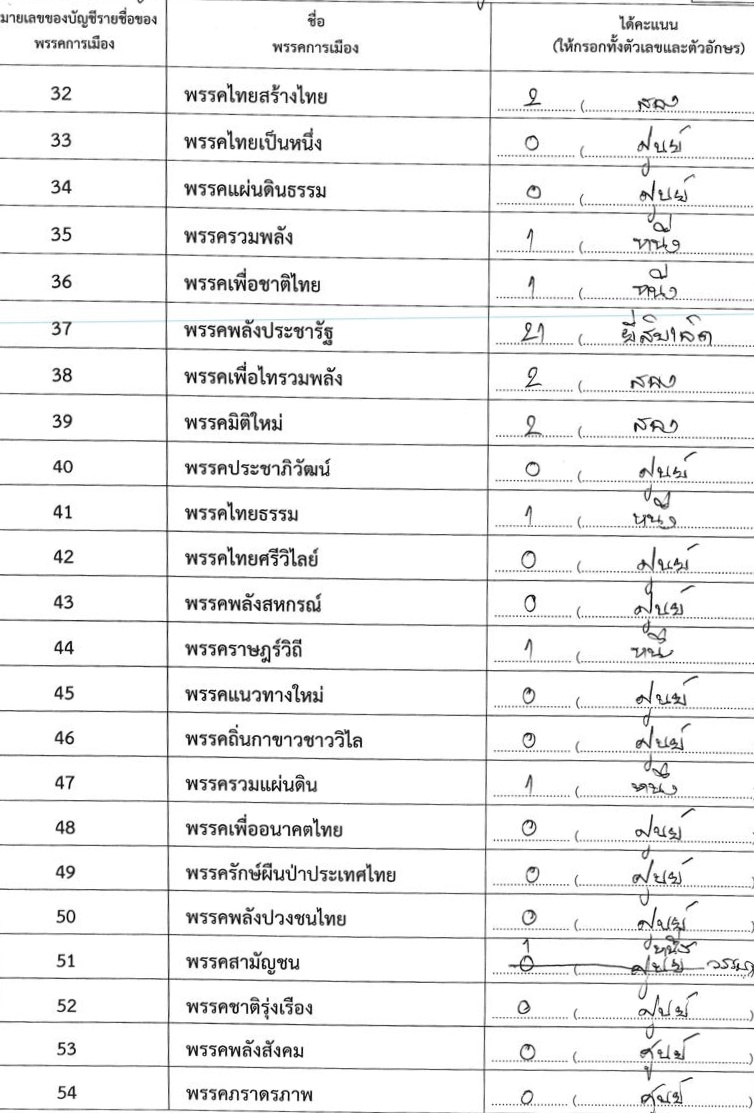 มายเลขของบัญชีรายชื่อของ ชื่อ ได้คะแนน
พรรคการเมือง พรรคการเมือง (ให้กรอกทั้งตัวเลขและตัวอักษร)
32 พรรคไทยสร้างไทย 2 ( สอง
33 พรรคไทยเป็นหนึ่ง 0 ( ศูนย์
34 พรรคแผ่นดินธรรม 0 ( ศูนย์
35 พรรครวมพลัง 1 ( หนึ่ง
36 พรรคเพื่อชาติไทย 1 ( หนึ่ง
37 พรรคพลังประชารัฐ 21 ( ยี่สิบเอ็ด
38 พรรคเพื่อไทรวมพลัง 2 ( สอง
39 พรรคมิติใหม่ 2 ( สอง
40 พรรคประชาภิวัฒน์ 0 ( ศูนย์
41 พรรคไทยธรรม 1 ( หนึ่ง
42 พรรคไทยศรีวิไลย์ 0 ( ศูนย์
43 พรรคพลังสหกรณ์ 0 ( ศูนย์
44 พรรคราษฎร์วิถี 1 ( หนึ่ง
45 พรรคแนวทางใหม่ 0 ( ศูนย์
46 พรรคถิ่นกาขาวชาววิไล 0 ( ศูนย์
47 พรรครวมแผ่นดิน 1 ( หนึ่ง
48 พรรคเพื่ออนาคตไทย 0 ( ศูนย์
49 พรรครักษ์ผืนป่าประเทศไทย 0 ( ศูนย์
50 พรรคพลังปวงชนไทย 0 ( ศูนย์ )
1 หนึ่ง
51 พรรคสามัญชน 0 ( ศูนย์
52 พรรคชาติรุ่งเรือง 0 ( ศูนย์ )
53 พรรคพลังสังคม 0 ( ศูนย์ )
54 พรรคภราดรภาพ 0 ( ศูนย์ )